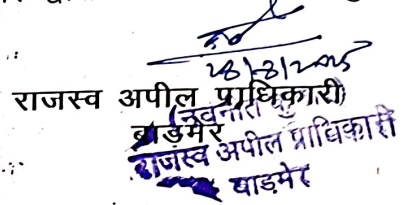 28/8/2025
राजस्व अपील प्राधिकारी
(नवनीत कुमार)
बाड़मेर
राजस्व अपील प्राधिकारी
बाड़मेर